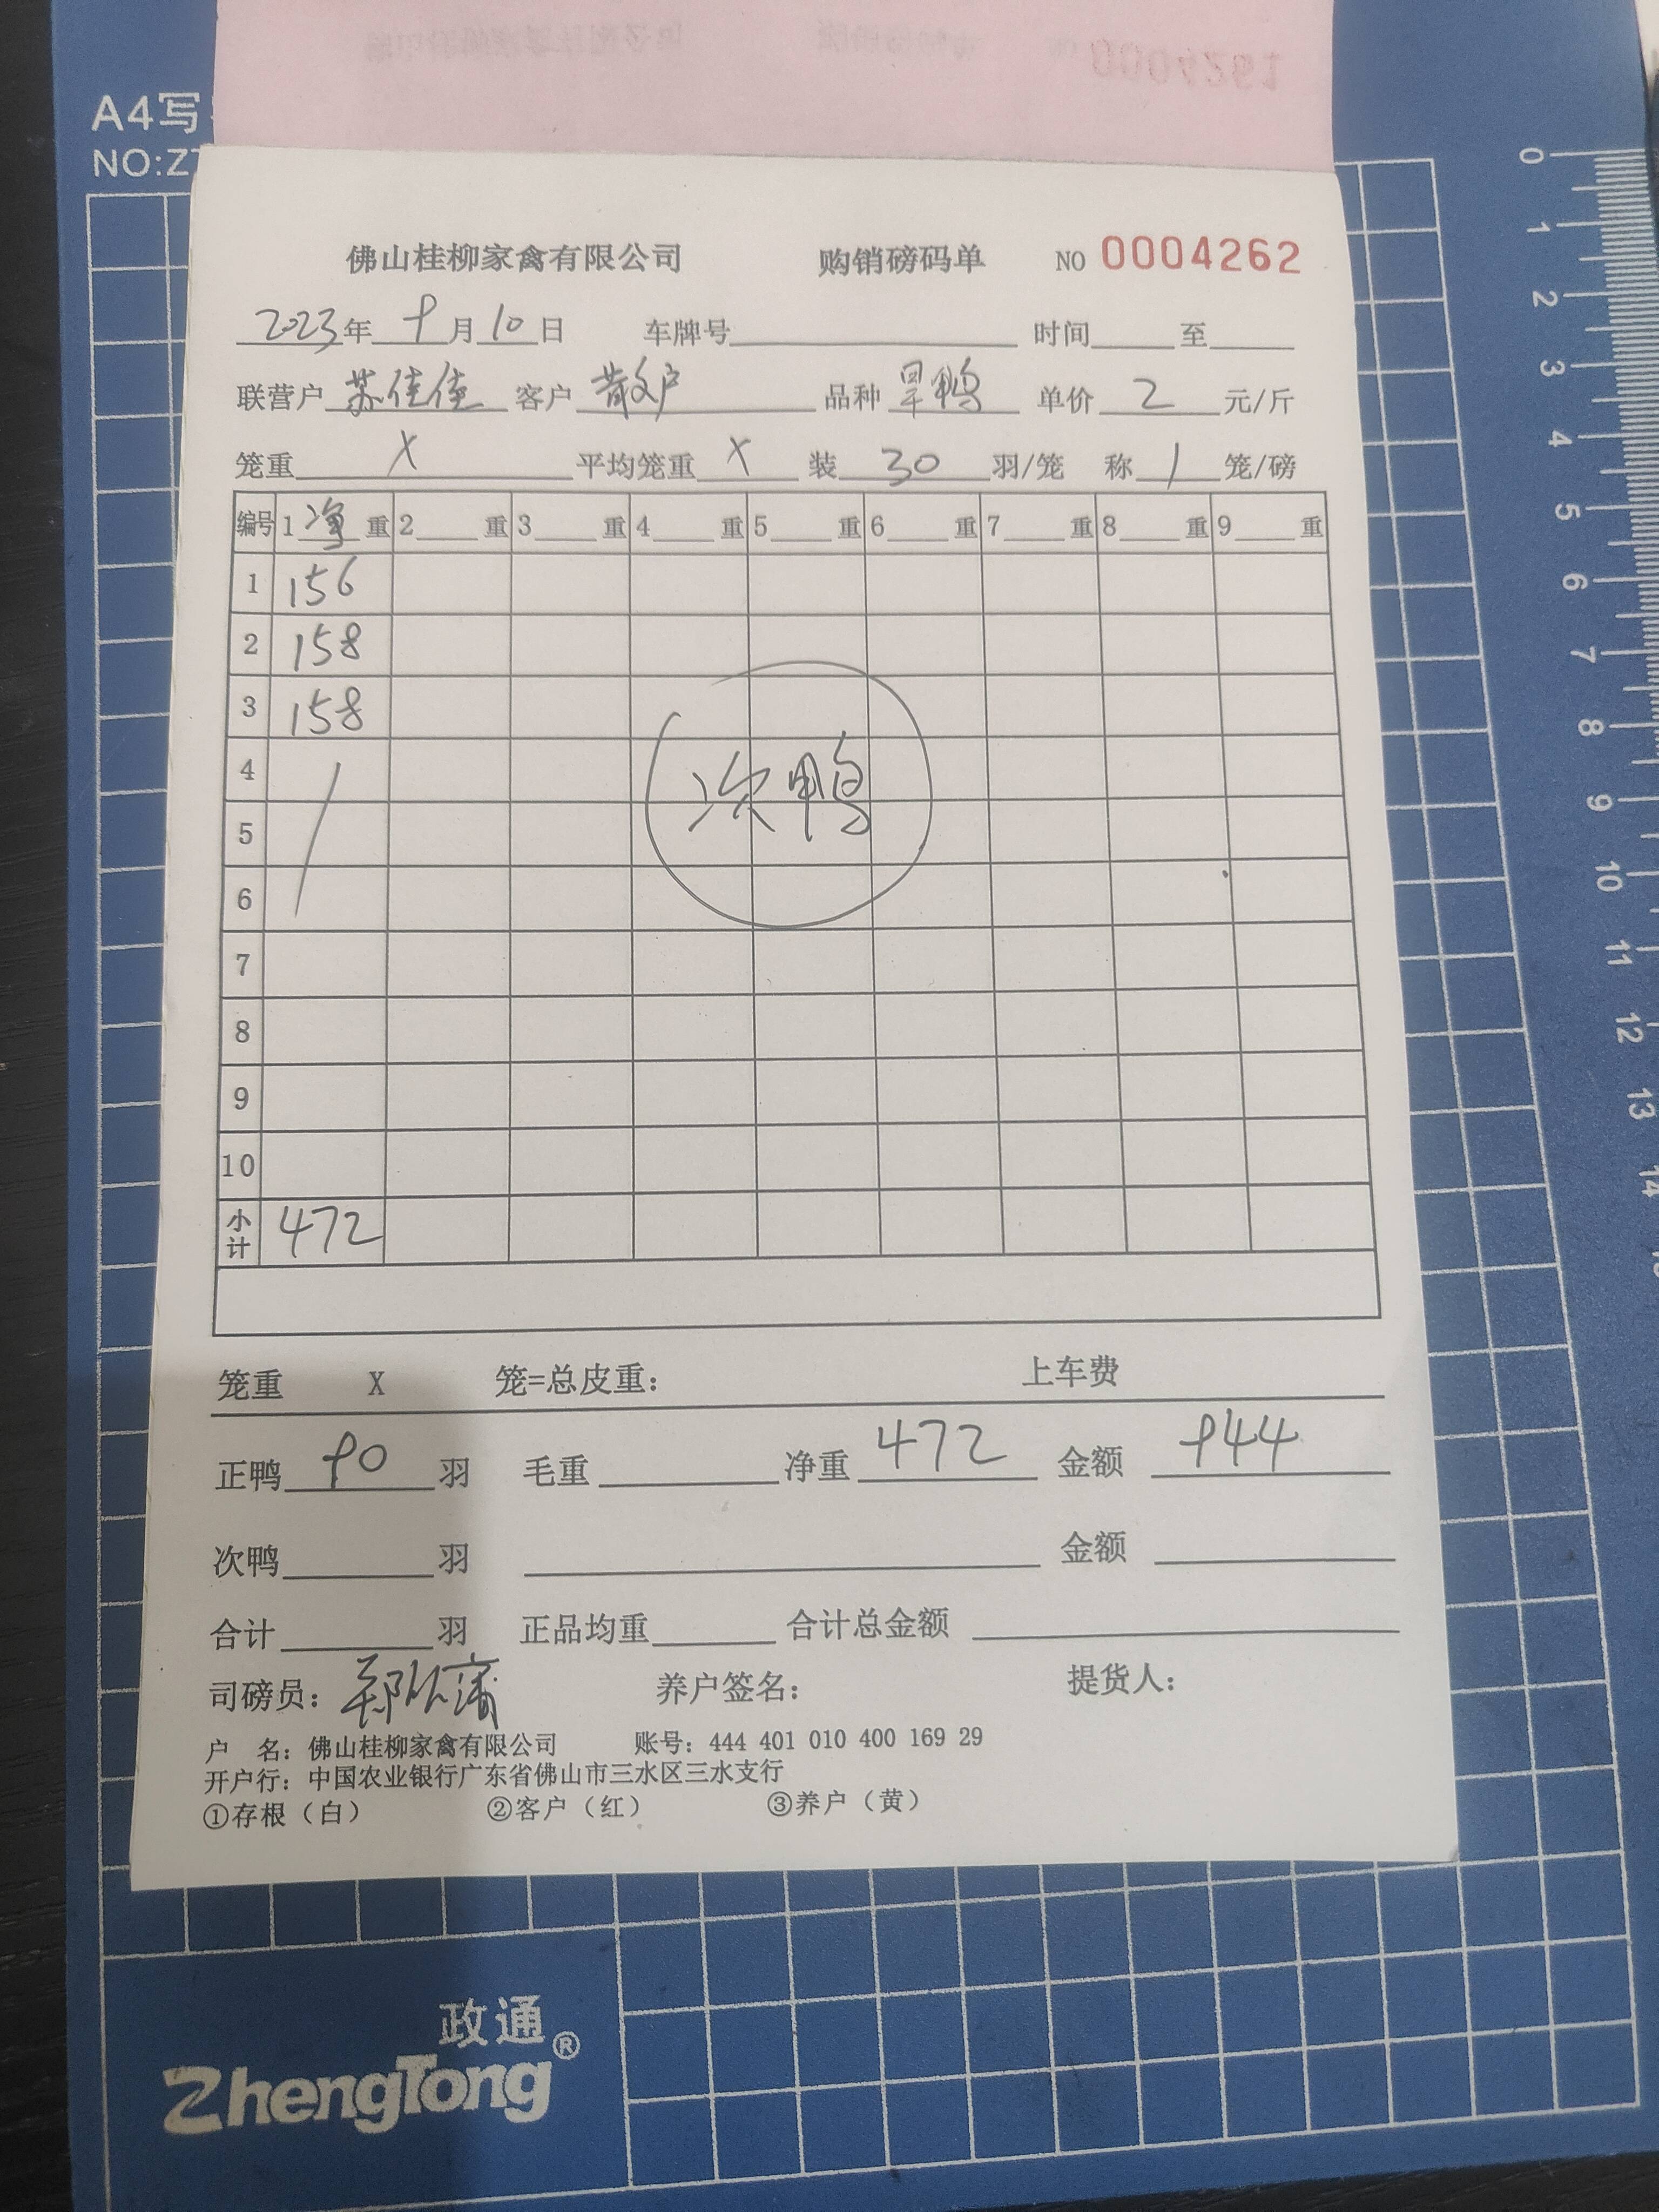 0004261
A4写
NO:Z
佛山桂柳家禽有限公司 购销磅码单 NO 0004262
2023年 9月10日 车牌号 时间 至
联营户 苏佳佳 客户 散户 品种 旱鸭 单价 2 元/斤
笼重 X 平均笼重 X 装 30 羽/笼 称 1 笼/磅
编号 1 净 重 2 重 3 重 4 重 5 重 6 重 7 重 8 重 9 重
1 156
2 158
3 158
4
次鸭
5
6
7
8
9
10
小计 472
笼重 X 笼=总皮重： 上车费
正鸭 90 羽 毛重 净重 472 金额 944
次鸭 羽 金额
合计 羽 正品均重 合计总金额
司磅员： 养户签名： 提货人：
户 名：佛山桂柳家禽有限公司 账号：444 401 010 400 169 29
开户行：中国农业银行广东省佛山市三水区三水支行
①存根（白） ②客户（红） ③养户（黄）
政通®
ZhengTong
0
1
2
3
4
5
6
7
8
9
10
11
12
13
14